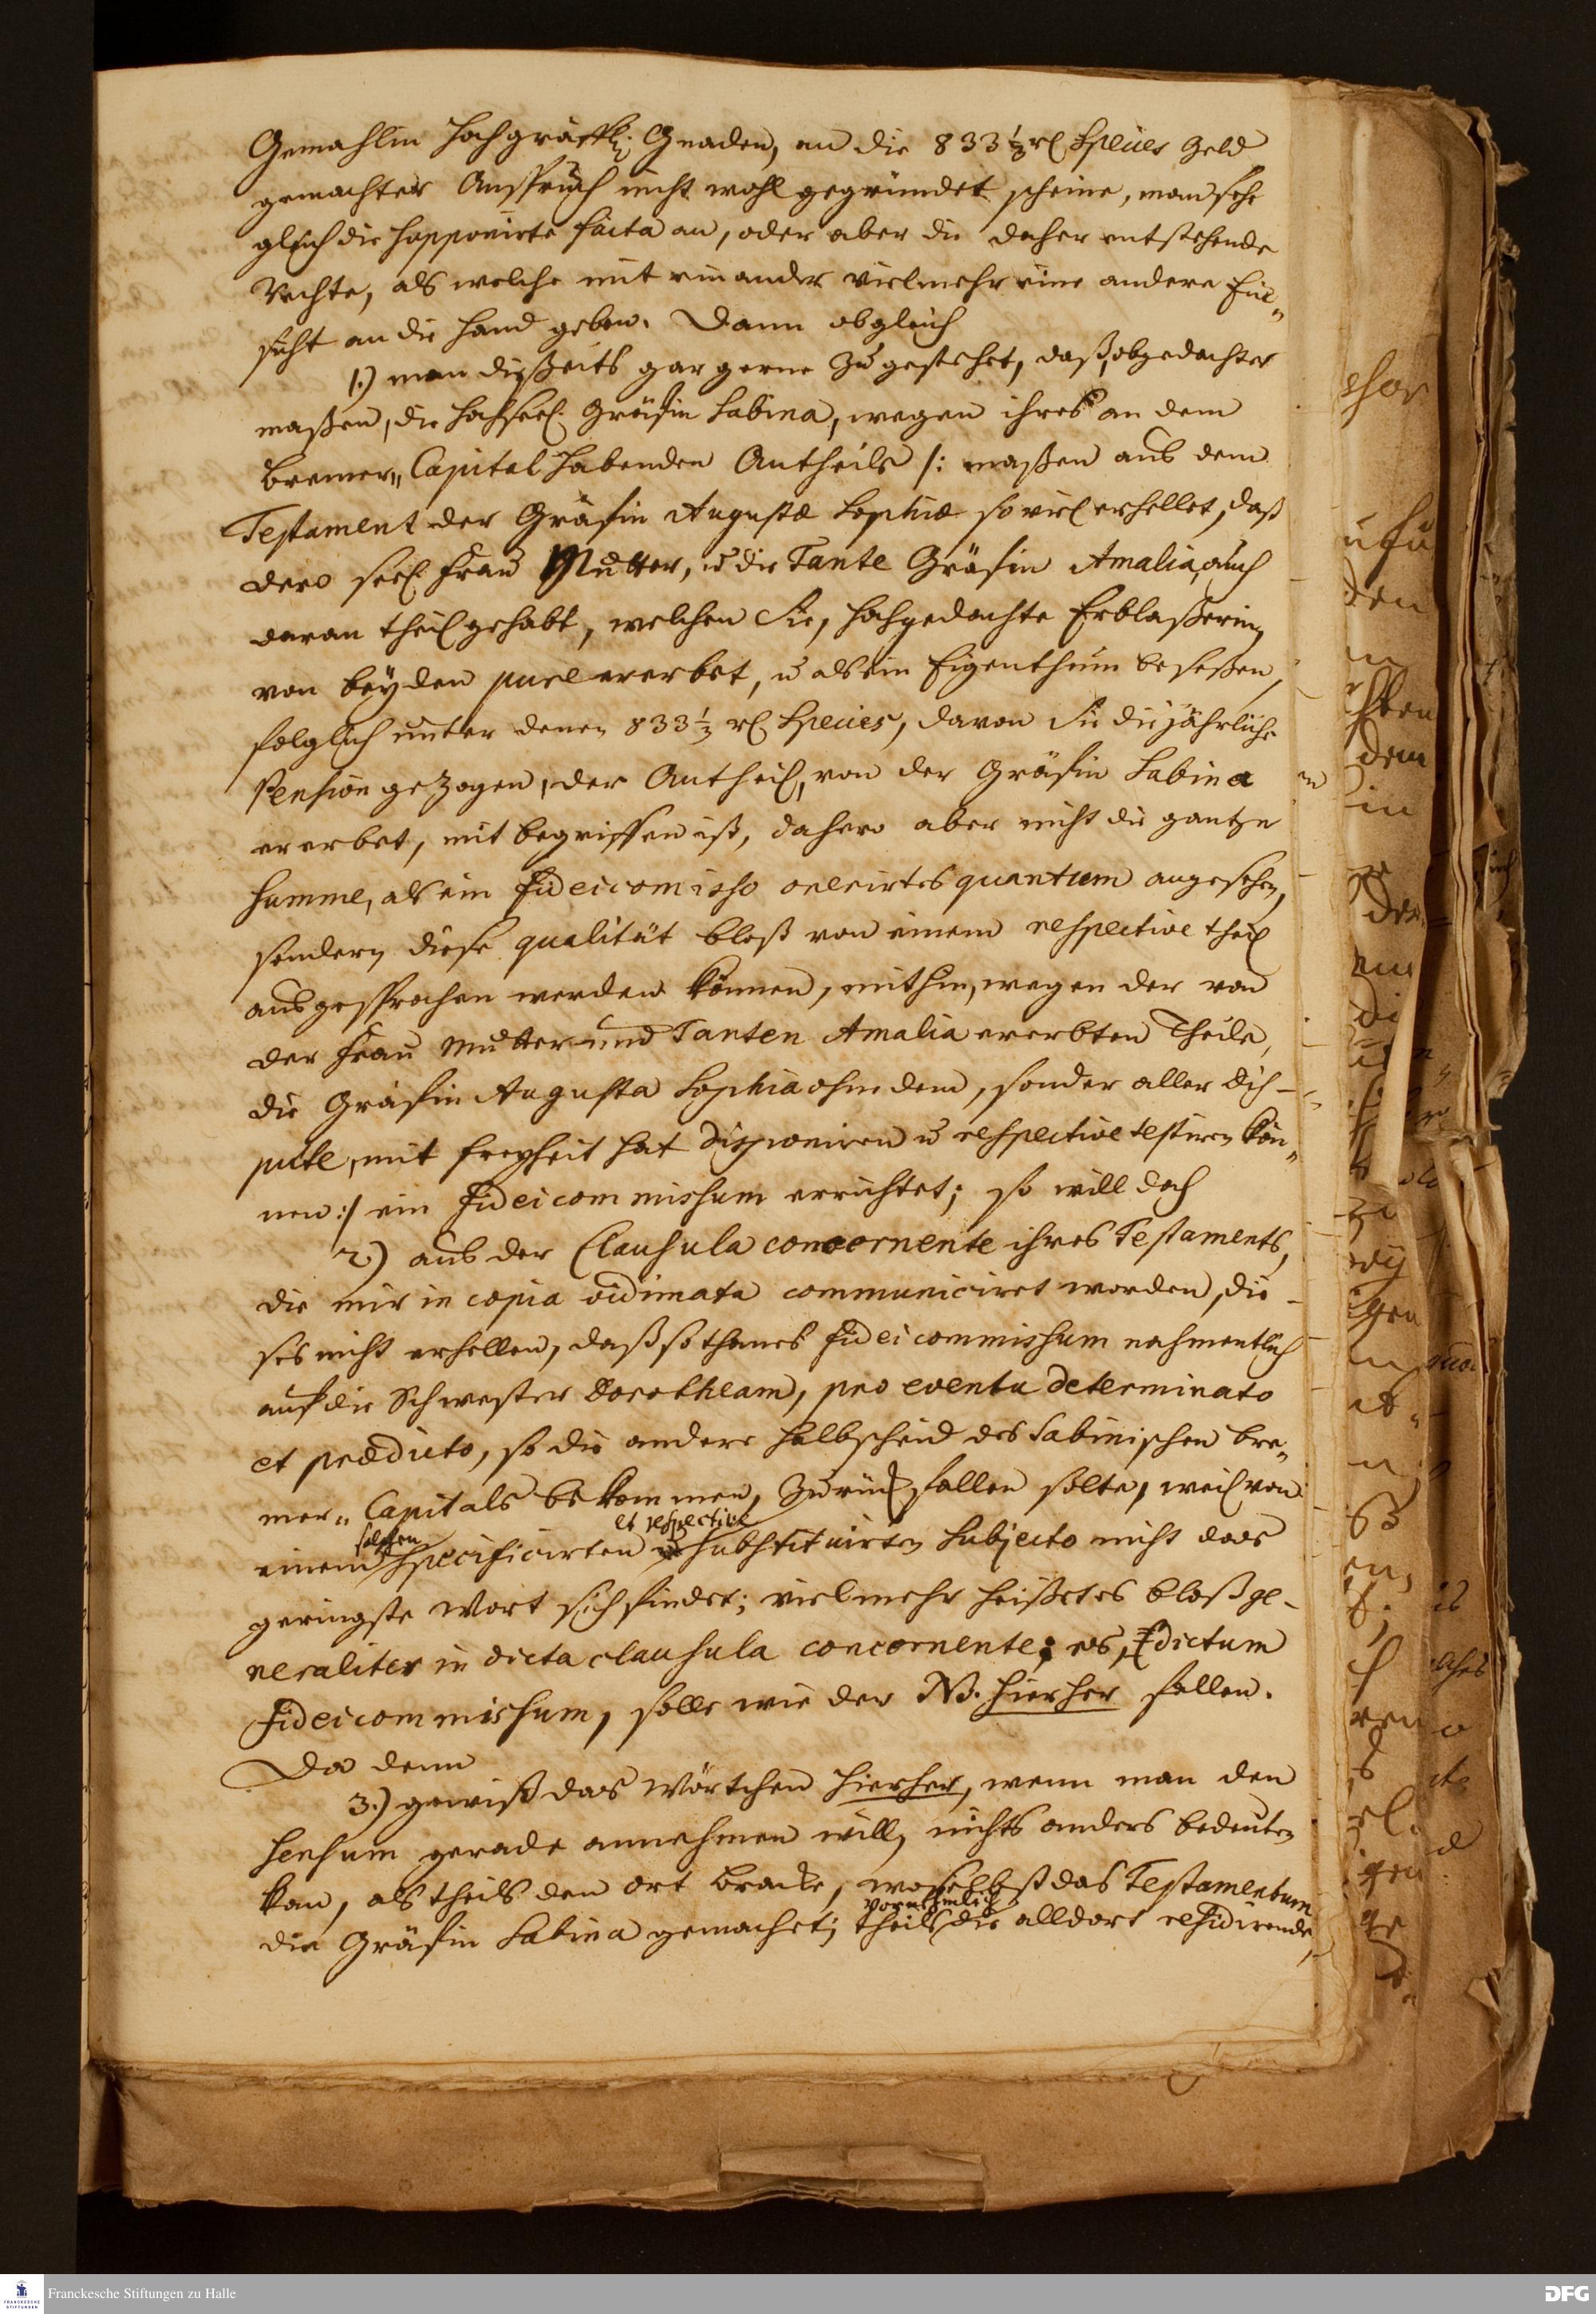 Gemahlin Hochgräffl. Gnaden, an die 833⅓ rl Species Geld
gemachter Anspruch nicht wohl gegründet scheine, man sehe
gleich die supponirte facta an, oder aber die daher entstehende
Rechte, als welche mit einander vielmehr eine andere Ein„
sicht an die Hand geben. Dann obgleich
1.) man dießseits gar gerne zu gestehet, daß, obgedachter
maßen, die Hochseel. Gräfin Sabina, wegen ihres an dem
Bremer„ Capital habenden Antheils /: maßen aus dem
Testament der Gräfin Augustæ Sophiæ so viel erhellet, daß
dero seel. Frau Mutter, u die Tante Gräfin Amalia, auch
daran theil gehabt, welchen Sie, hochgedachte Erblaßerin,
von beyden pure ererbet, u als ein Eigenthum beseßen,
folglich unter denen 833⅓ rl Species, davon Sie die jährliche
Pension gezogen, der Antheil, von der Gräfin Sabina
ererbet, mit begriffen ist, dahero aber nicht die gantze
Summe, als ein Fideicomisso onerirtes quantum angesehen,
sondern diese qualität bloß von einem respective theil
ausgesprochen werden können, mithin, wegen der von
der Frau Mutter und Tanten Amalia ererbten Theile,
die Gräfin Augusta Sophia ohne dem, sonder aller Dis-
pute, mit freyheit hat disponiren u respective testiren kön„
nen :/ ein Fideicommissum errichtet; so will doch
2.) aus der Clausula concernente ihres Testaments,
die mir in copia vidimata communiciret worden, die-
ses nicht erhellen, daß sothanes Fideicommissum nahmentlich
auf die Schwester Dorotheam, pro eventu determinato
et prædicto, so die andere Halbscheid des Sabinischen Bre„
mer„ Capitals bekommen, zurück fallen solte, weil von
solchen et respective
einem specificirten substituirten Subjecto nicht das
geringste Wort sich findet; vielmehr heißet es bloß ge-
neraliter in dicta clausula concernente; es, dictum
Fideicommissum, solle wieder NB. hierher fallen.
Da denn
3.) gewiß das Wörtchen hierher, wenn man den
Sensum gerade annehmen will, nichts anders bedeuten
kan, als theils den Ort Bracke, woselbst das Testamentum
vornehmlich
die Gräfin Sabina gemachet; theils die alldort residirende,
Franckesche Stiftungen zu Halle
DFG